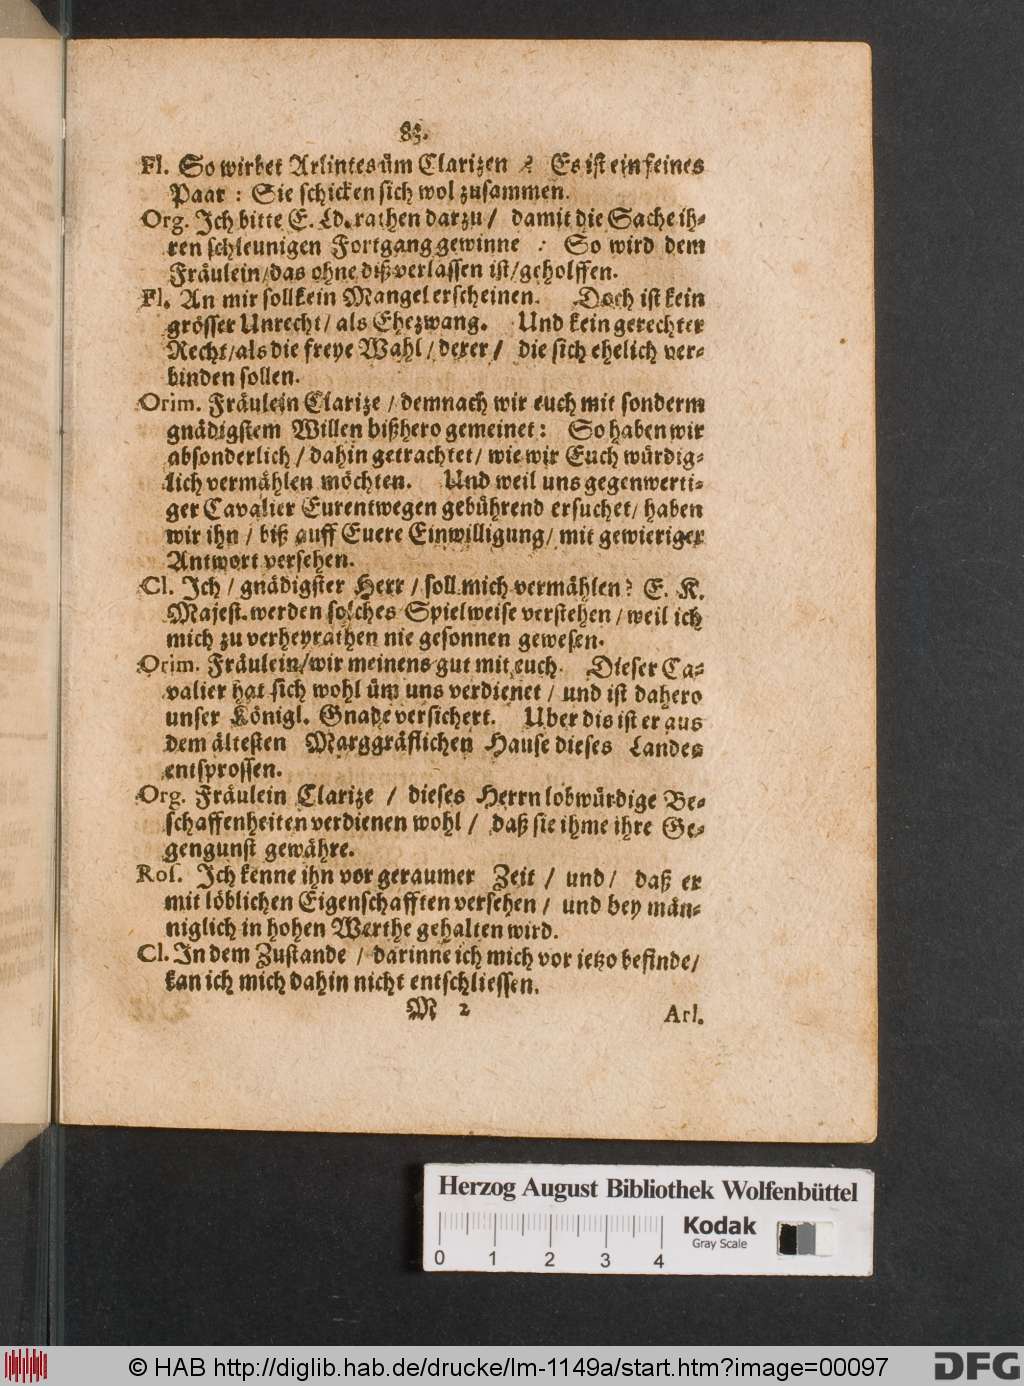 83.
Fl. So wirbet Arlintes üm Clarizen ? Es ist ein feines
Paar : Sie schicken sich wol zusammen.
Org. Ich bitte E. Ld. rathen darzu / damit die Sache ih-
ren schleunigen Fortgang gewinne : So wird dem
Fräulein / das ohne diß verlassen ist / geholffen.
Fl. An mir soll kein Mangel erscheinen. Doch ist kein
grösser Unrecht / als Ehezwang. Und kein gerechter
Recht / als die freye Wahl / derer / die sich ehelich ver-
binden sollen.
Orim. Fräulein Clarize / demnach wir euch mit sonderm
gnädigstem Willen bißhero gemeinet : So haben wir
absonderlich / dahin getrachtet / wie wir Euch würdig-
lich vermählen möchten. Und weil uns gegenwerti-
ger Cavalier Eurentwegen gebührend ersuchet / haben
wir ihn / biß auff Euere Einwilligung / mit gewieriger
Antwort versehen.
Cl. Ich / gnädigster Herr / soll mich vermählen ? E. K.
Majest. werden solches Spielweise verstehen / weil ich
mich zu verheyrathen nie gesonnen gewesen.
Orim. Fräulein / wir meinens gut mit euch. Dieser Ca-
valier hat sich wohl üm uns verdienet / und ist dahero
unser Königl. Gnade versichert. Uber dis ist er aus
dem ältesten Marggräflichen Hause dieses Landes
entsprossen.
Org. Fräulein Clarize / dieses Herrn lobwürdige Be-
schaffenheiten verdienen wohl / daß sie ihme ihre Ge-
gengunst gewähre.
Ros. Ich kenne ihn vor geraumer Zeit / und / daß er
mit löblichen Eigenschafften versehen / und bey män-
niglich in hohen Werthe gehalten wird.
Cl. In dem Zustande / darinne ich mich vor ietzo befinde /
kan ich mich dahin nicht entschliessen.
M 2 Arl.
Herzog August Bibliothek Wolfenbüttel
Kodak
Gray Scale
0 1 2 3 4
© HAB http://diglib.hab.de/drucke/lm-1149a/start.htm?image=00097
DFG